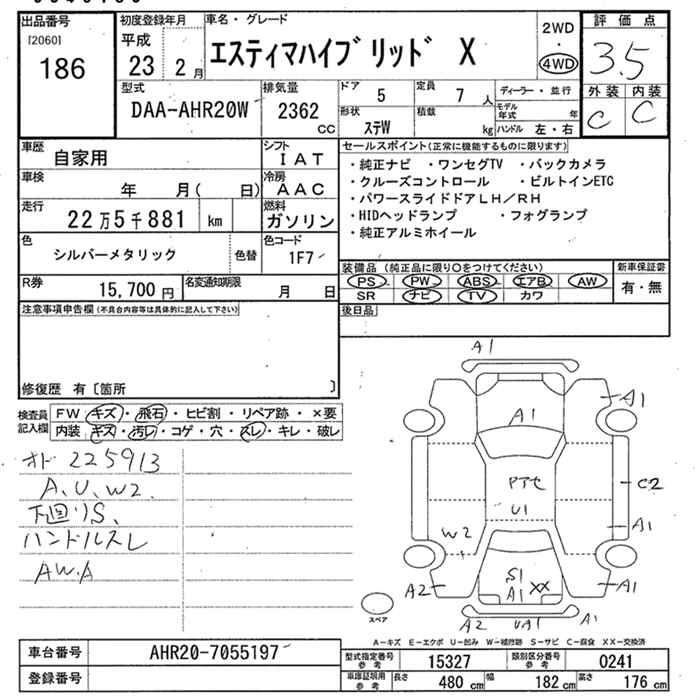 出品番号
[2060]
186
初度登録年月
平成
23 2月
車名・グレード
エスティマハイブリッド X
2WD
・
4WD
評価点
3.5
外装 内装
C C
型式
DAA-AHR20W
排気量
2362
CC
ドア
5
定員
7 人
形状
ステW
積載
kg
ディーラー・並行
モデル年式 年
ハンドル 左・右
車歴
自家用
シフト
IAT
車検
年 月( 日)
冷房
AAC
走行
22万5千881 km
燃料
ガソリン
色
シルバーメタリック
色替
色コード
1F7
R券
15,700 円
名変通知期限
月 日
セールスポイント(正常に機能するものに限ります)
・純正ナビ ・ワンセグTV ・バックカメラ
・クルーズコントロール ・ビルトインETC
・パワースライドドアLH/RH
・HIDヘッドランプ ・フォグランプ
・純正アルミホイール
装備品(純正品に限り○をつけてください)
PS PW ABS エアB AW
SR ナビ TV カワ
新車保証書
有・無
後日品
注意事項申告欄(不具合内容等は具体的に記入して下さい)
修復歴 有〔箇所 〕
検査員
記入欄
FW キズ・飛石・ヒビ割・リペア跡・×要
内装 キズ・汚レ・コゲ・穴・スレ・キレ・破レ
オド 225913
A、U、W2、
下回リS、
ハンドルスレ
AW.A
A1
A1
A1
C2
Pアセ
U1
A1
W2
S1
A1 XX
A2
A1
A2
UA1
A1
スペア
A-キズ E-エクボ U-凹み W-補修跡 S-サビ C-腐食 XX-交換済
車台番号
AHR20-7055197
登録番号
型式指定番号
参考
15327
類別区分番号
参考
0241
車庫証明用
参考
長さ
480 cm
幅
182 cm
高さ
176 cm